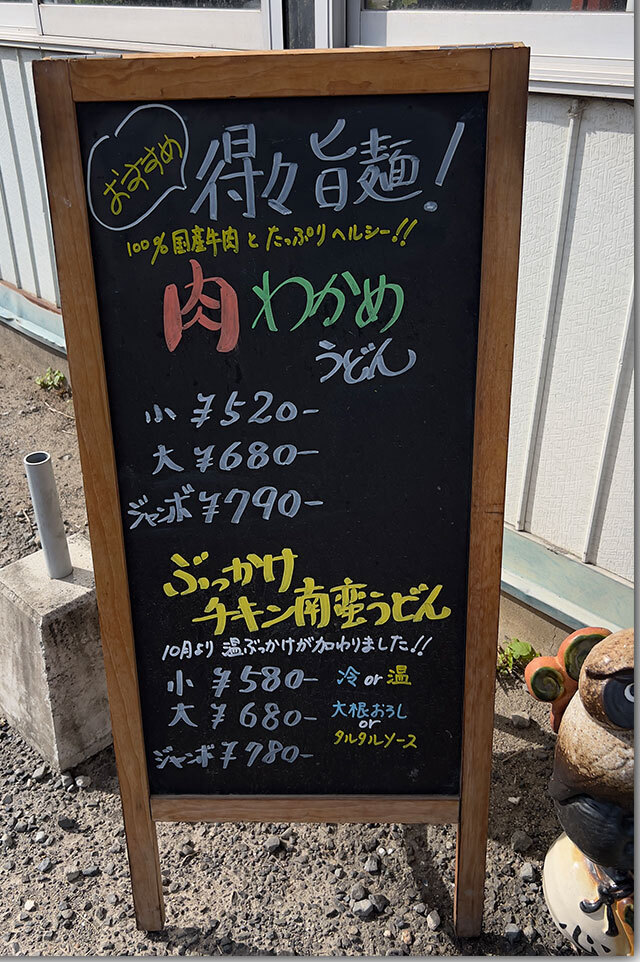 おすすめ
得々旨麺!
100%国産牛肉とたっぷりヘルシー!!
肉わかめ
うどん
小 ¥520-
大 ¥680-
ジャンボ ¥790-
ぶっかけ
チキン南蛮うどん
10月より 温ぶっかけが加わりました!!
小 ¥580- 冷or温
大 ¥680- 大根おろし
or
ジャンボ ¥780- タルタルソース